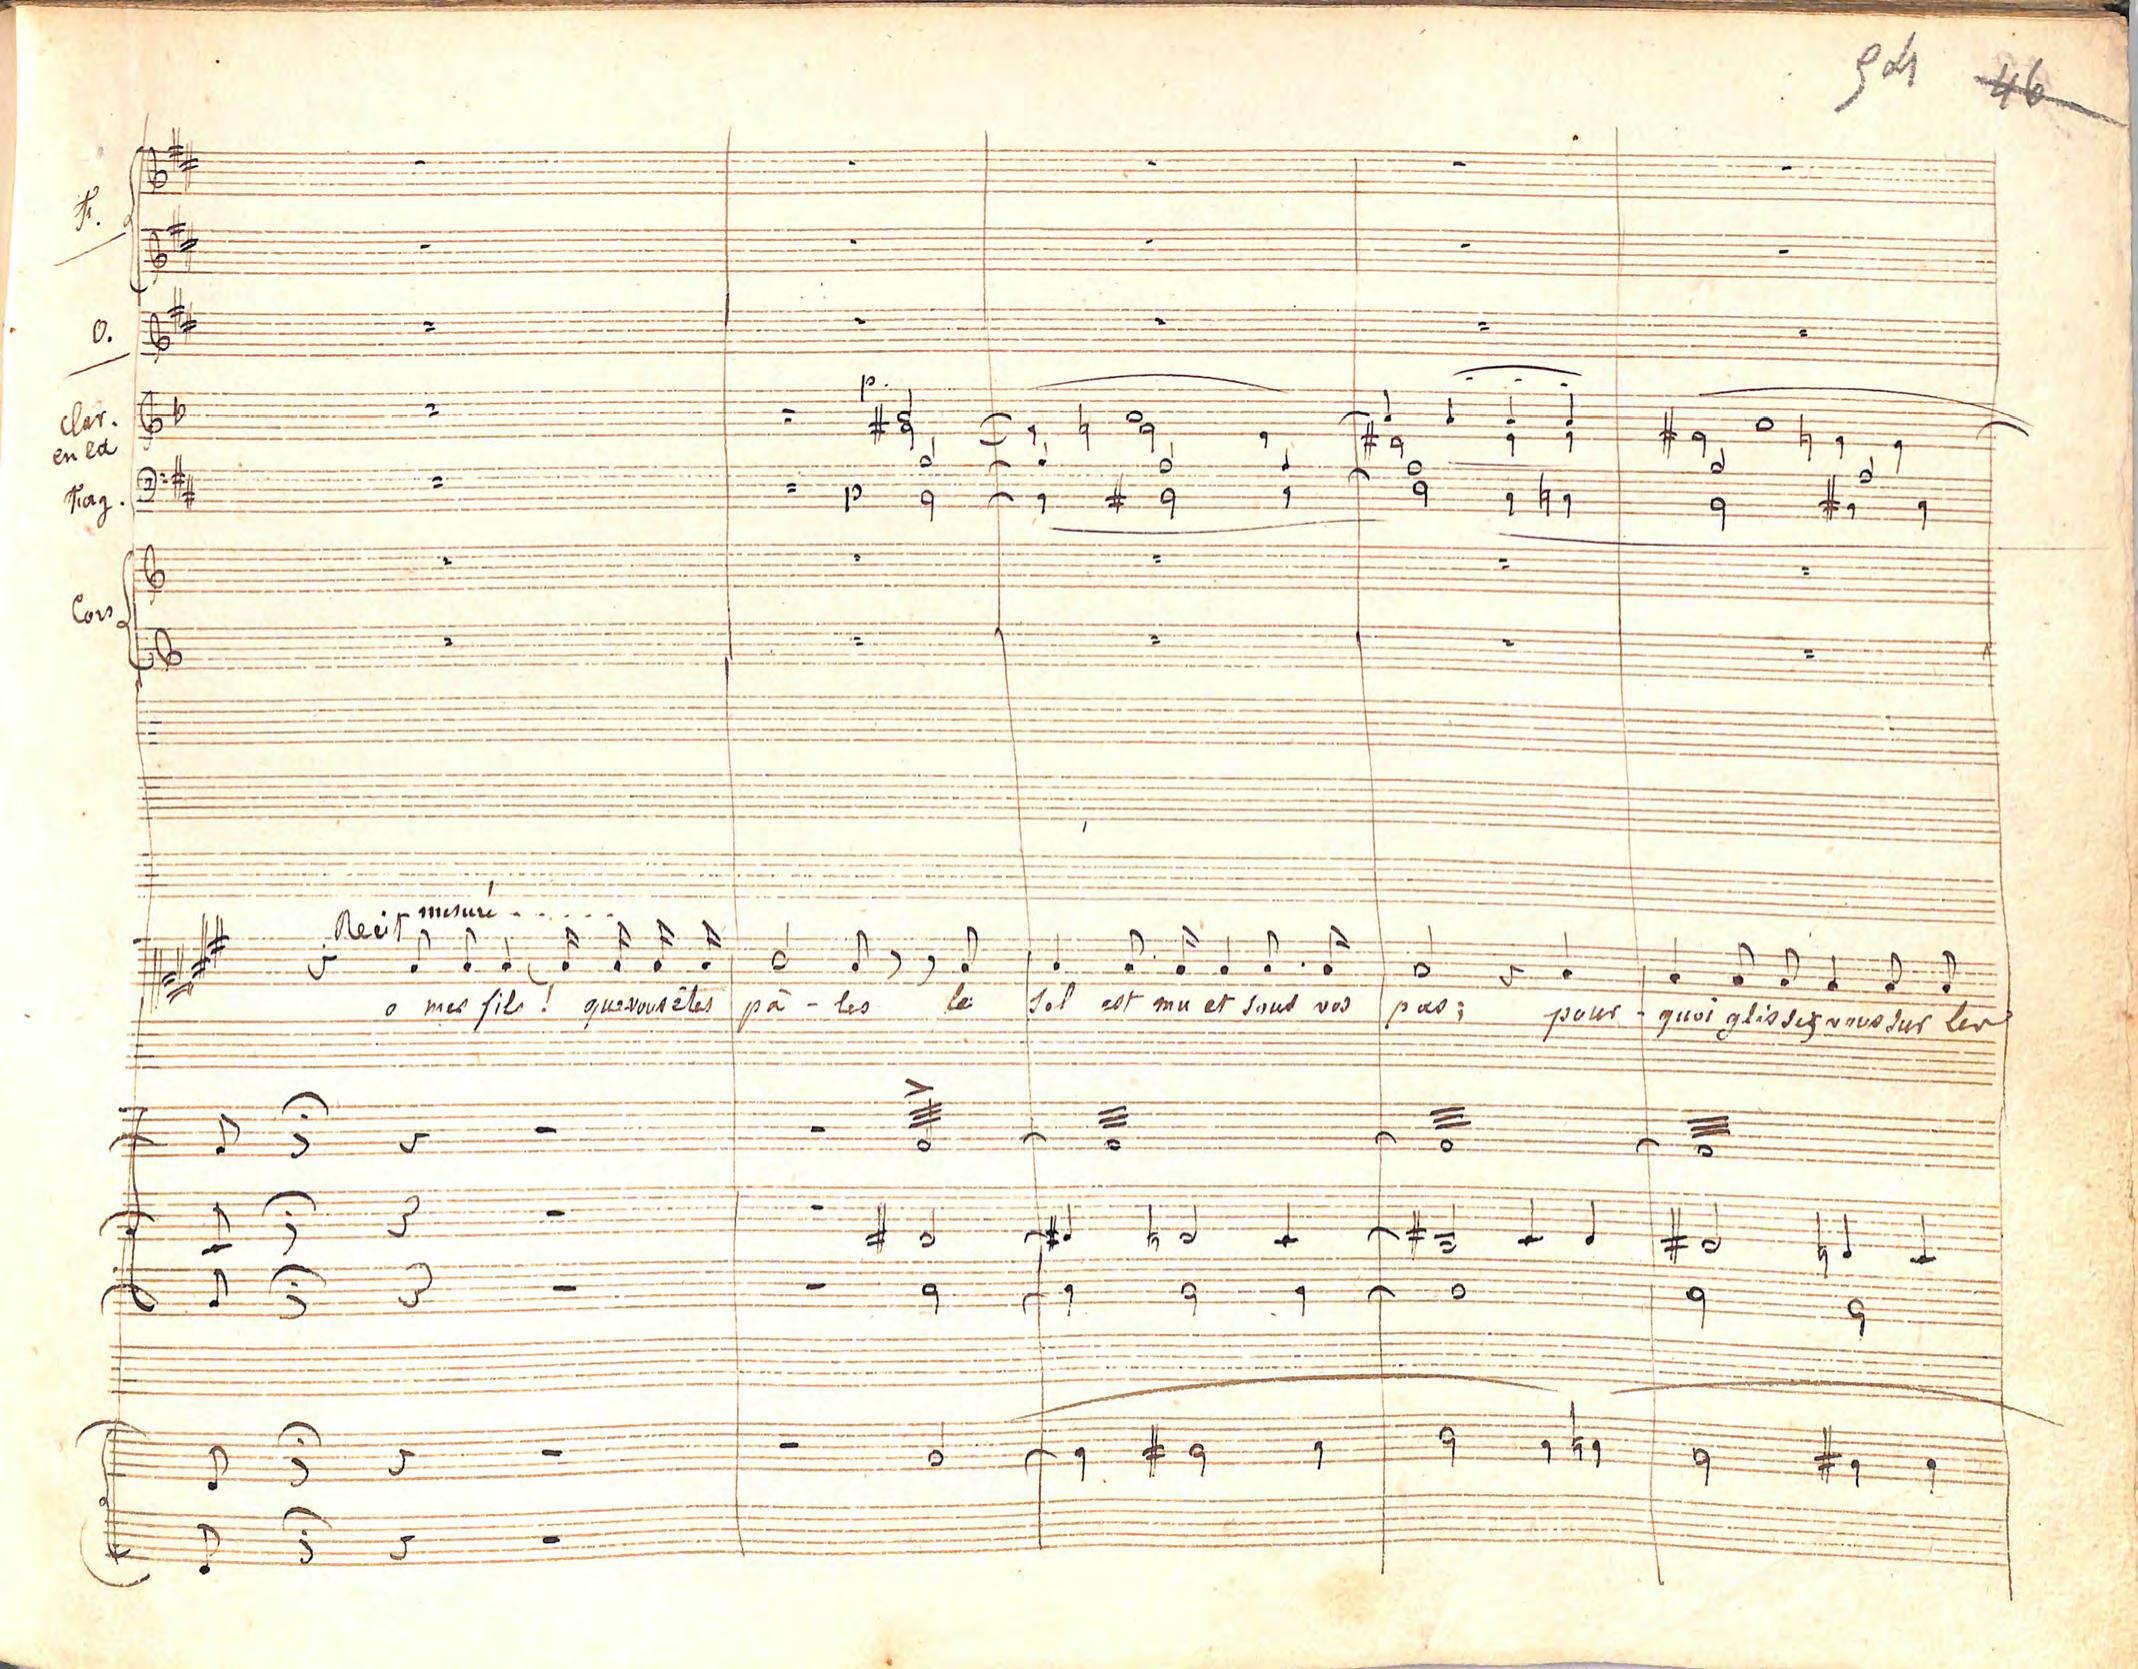 46
F.
O.
Clar.
en la
p.
Fag.
p
Cors
Recit mesuré
o mes fils ! que vous êtes pâ - les le sol est mu et sous vos pas ; pour - quoi glissez vous sur les